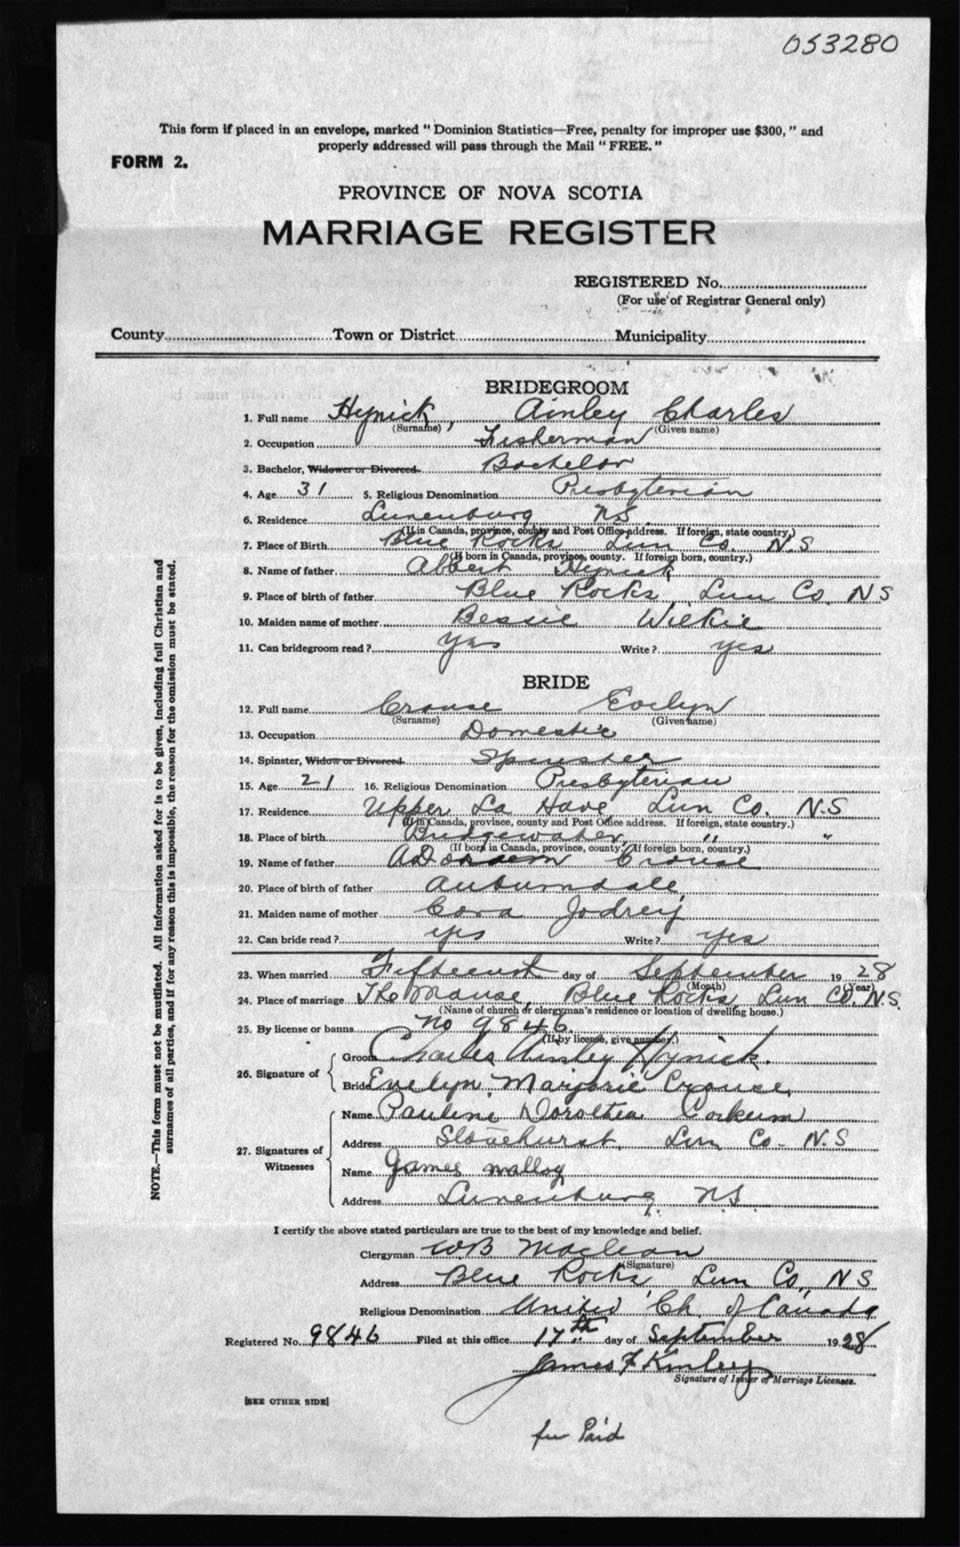 053280
This form if placed in an envelope, marked "Dominion Statistics—Free, penalty for improper use $300," and
properly addressed will pass through the Mail "FREE."
FORM 2.
PROVINCE OF NOVA SCOTIA
MARRIAGE REGISTER
REGISTERED No.
(For use of Registrar General only)
County Town or District Municipality
BRIDEGROOM
1. Full name Hynick, Ainley Charles
(Surname) (Given name)
2. Occupation Fisherman
3. Bachelor, Widower or Divorced. Bachelor
4. Age 31 5. Religious Denomination Presbyterian
6. Residence Lunenburg NS.
(If in Canada, province, county and Post Office address. If foreign, state country.)
7. Place of Birth Blue Rocks Lun Co. N.S
(If born in Canada, province, county. If foreign born, country.)
8. Name of father Albert Hynick
9. Place of birth of father Blue Rocks, Lun Co. NS
10. Maiden name of mother Bessie Wilkie
11. Can bridegroom read? yes Write? yes
BRIDE
12. Full name Crouse Evelyn
(Surname) (Given name)
13. Occupation Domestic
14. Spinster, Widow or Divorced Spinster
15. Age 21 16. Religious Denomination Presbyterian
17. Residence Upper La Have, Lun Co. N.S
(If in Canada, province, county and Post Office address. If foreign, state country.)
18. Place of birth Bridgewater, " "
(If born in Canada, province, county. If foreign born, country.)
19. Name of father Crouse
20. Place of birth of father Auburndale
21. Maiden name of mother Cora Jodrey
22. Can bride read? yes Write? yes
23. When married Fifteenth day of September 1928
(Month) (Year)
24. Place of marriage The Manse, Blue Rocks, Lun Co. N.S.
(Name of church or clergyman's residence or location of dwelling house.)
25. By license or banns No 9846.
(If by license, give number.)
26. Signature of
Groom Charles Ainley Hynick.
Bride Evelyn Marjorie Crouse.
27. Signatures of Witnesses
Name Pauline Dorothea Corkum
Address Stonehurst, Lun Co. N.S
Name James Malloy
Address Lunenburg, NS.
I certify the above stated particulars are true to the best of my knowledge and belief.
Clergyman WB Maclean
(Signature)
Address Blue Rocks, Lun Co, NS
Religious Denomination United Ch. of Canada
Registered No. 9846 Filed at this office 17th day of September 1928
James F Kinley
Signature of Issuer of Marriage Licenses.
[SEE OTHER SIDE]
fee Paid
NOTE.—This form must not be mutilated. All information asked for is to be given, including full Christian and
surnames of all parties, and if for any reason this is impossible, the reason for the omission must be stated.